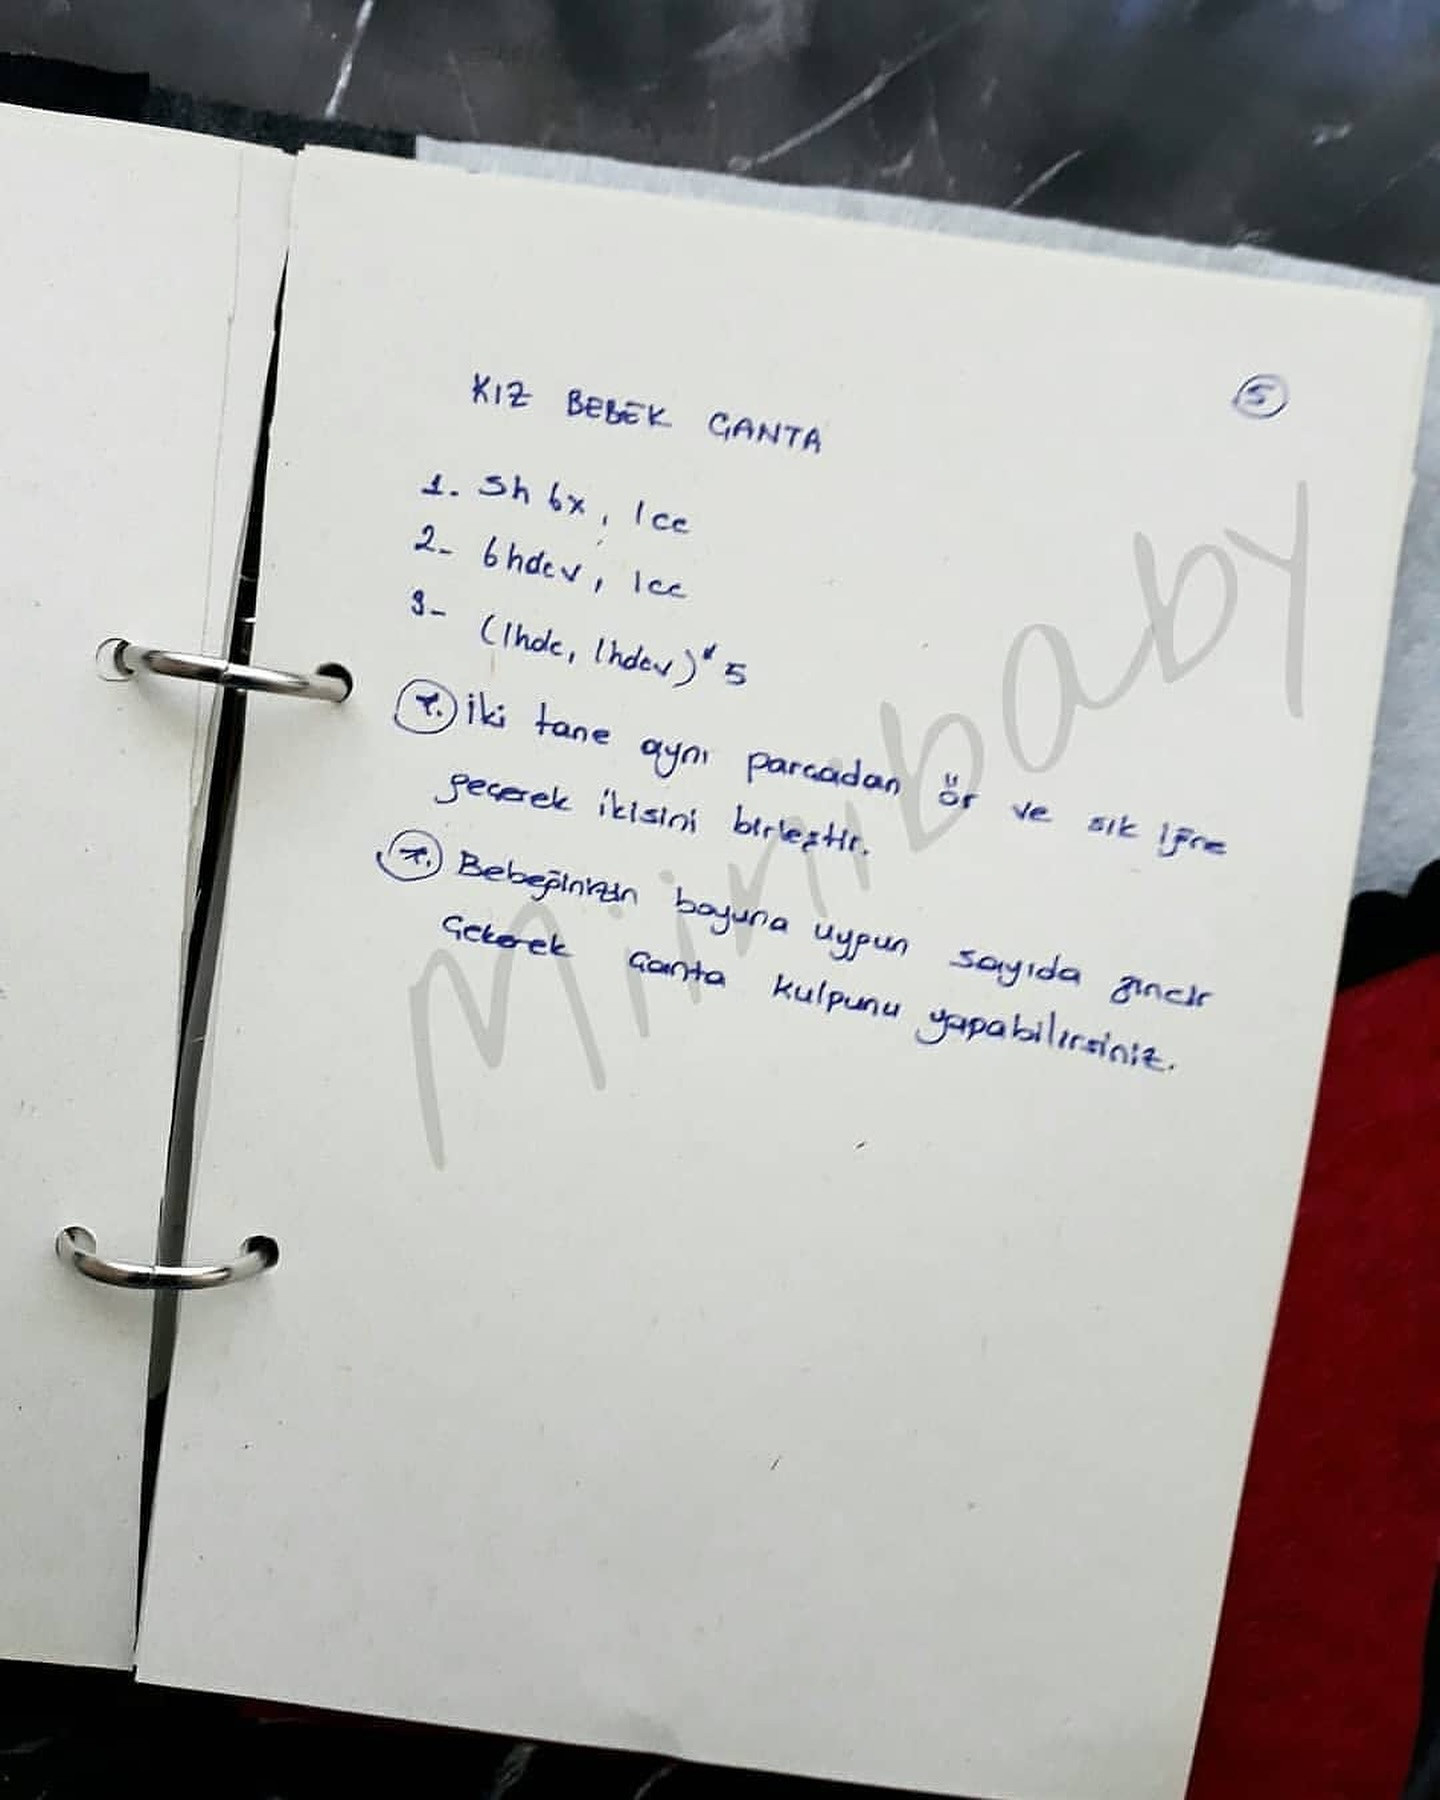 5
KIZ BEBEK ÇANTA
1. Sh 6x, 1cc
2- 6hdcv, 1cc
3- (1hdc, 1hdcv)* 5
*. İki tane aynı parçadan ör ve sık iğne
geçerek ikisini birleştir.
*. Bebeğinizin boyuna uygun sayıda zincir
Çekerek Çanta kulpunu yapabilirsiniz.
Miinibaby